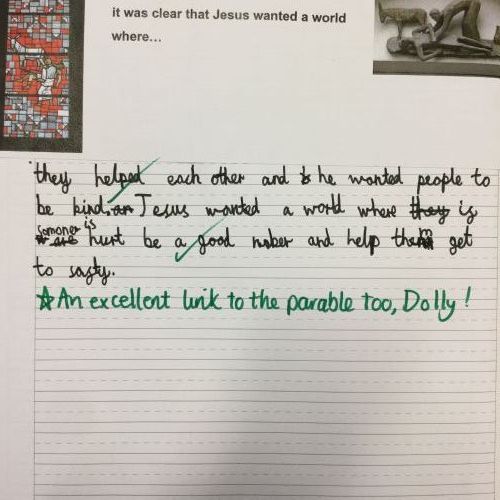 it was clear that Jesus wanted a world
where...
they helped each other and he wanted people to
be kind. Jesus wanted a world where they is
somoner is
are hurt be a good naber and help them get
to safty.
☆ An excellent link to the parable too, Dolly!